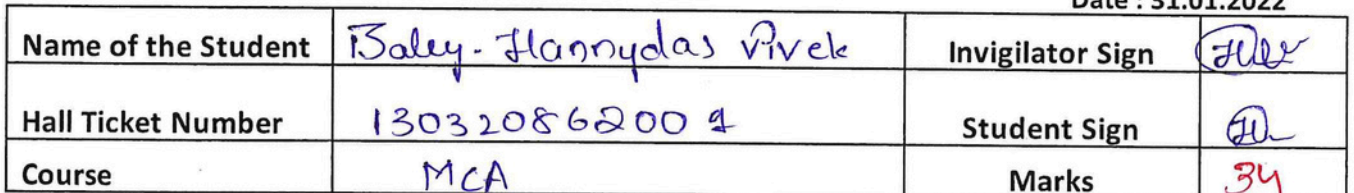 Date : 31.01.2022
Name of the Student Baley. Hannydas Vivek Invigilator Sign
Hall Ticket Number 130320862009 Student Sign
Course MCA Marks 34